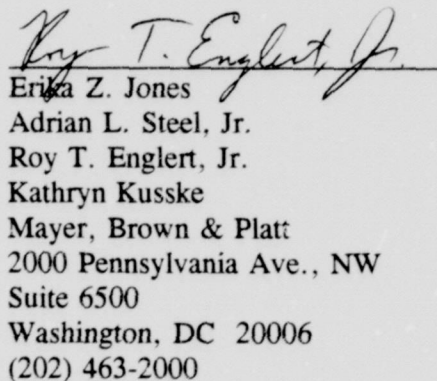 Roy T. Englert, Jr.
Erika Z. Jones
Adrian L. Steel, Jr.
Roy T. Englert, Jr.
Kathryn Kusske
Mayer, Brown & Platt
2000 Pennsylvania Ave., NW
Suite 6500
Washington, DC 20006
(202) 463-2000